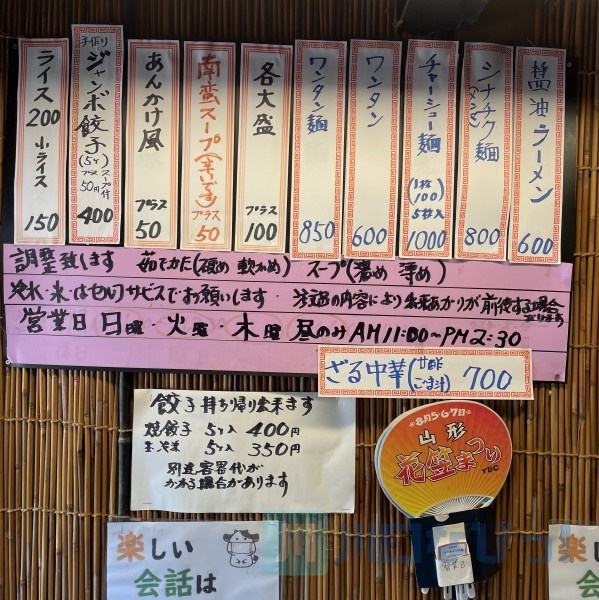 醤油ラーメン 600
シナチク麺 (メンマ) 800
チャーシュー麺 (1枚100) 5枚入 1000
ワンタン 600
ワンタン麺 850
各大盛 プラス 100
南蛮スープ(辛いです) プラス 50
あんかけ風 プラス 50
手作り ジャンボ餃子 (5ケ) スープ付 プラス50円 400
ライス 200 小ライス 150
調整致します 茹でかた(硬め 軟かめ) スープ(濃め 薄め)
冷水・氷はセルフサービスでお願いします・注文の内容により出来あがりが前後する場合
営業日 日曜・火曜・木曜 昼のみ AM11:00〜PM2:30
ざる中華 700
餃子持ち帰り出来ます
焼餃子 5ケ入 400円
5ケ入 350円
別途容器代が
かかる場合があります
8月5・6・7日
山形
花笠まつり
YBC
営業日
楽しい
会話は
楽し